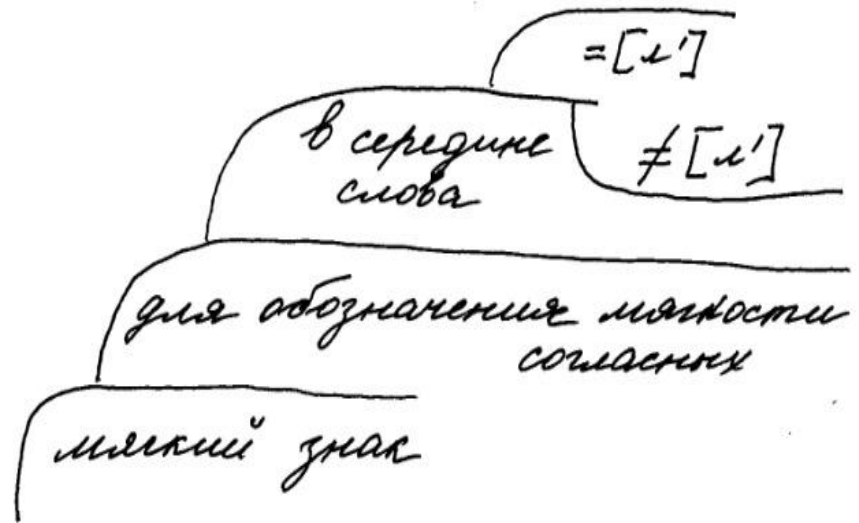 =[л']
в середине
слова
≠[л']
для обозначения мягкости
согласных
мягкий знак